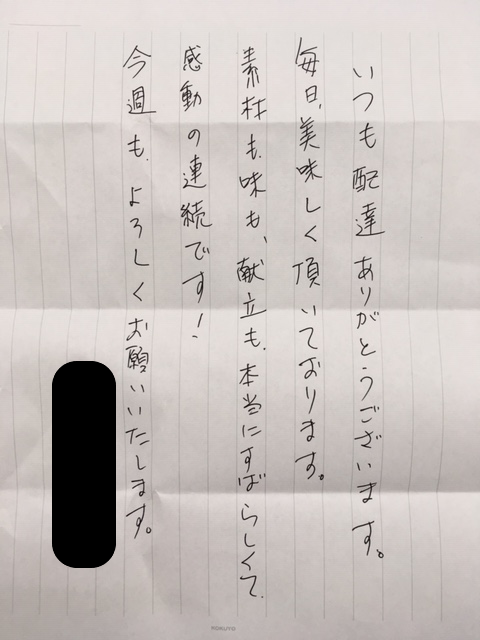 いつも配達ありがとうございます。
毎日、美味しく頂いております。
素材も、味も、献立も、本当にすばらしくて、
感動の連続です！
今週も、よろしくお願いいたします。
KOKUYO